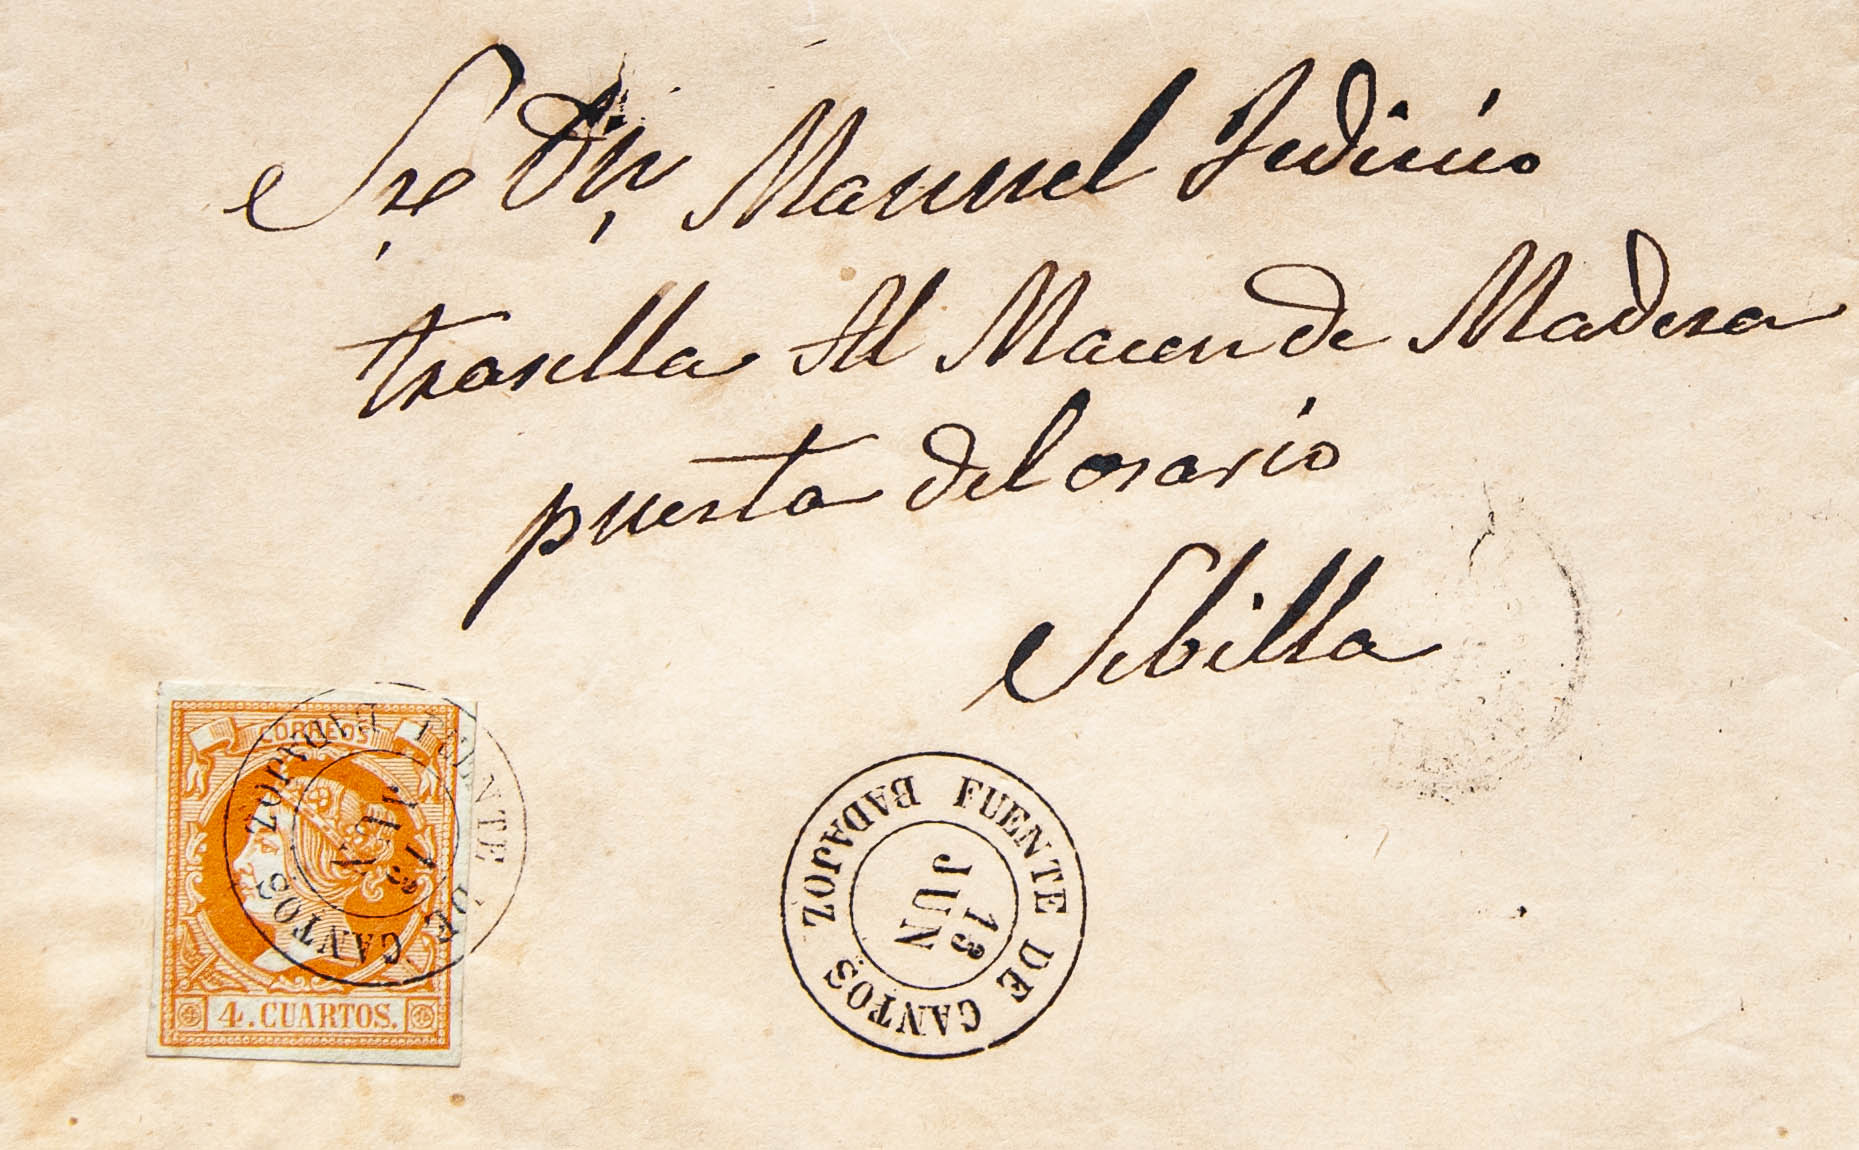 Sr. Dn. Manuel
trasella Al Macen de Madera
puerta del osario
Sebilla
CORREOS
4. CUARTOS.
FUENTE DE CANTOS BADAJOZ
13 JUN
FUENTE DE CANTOS BADAJOZ
13
JUN